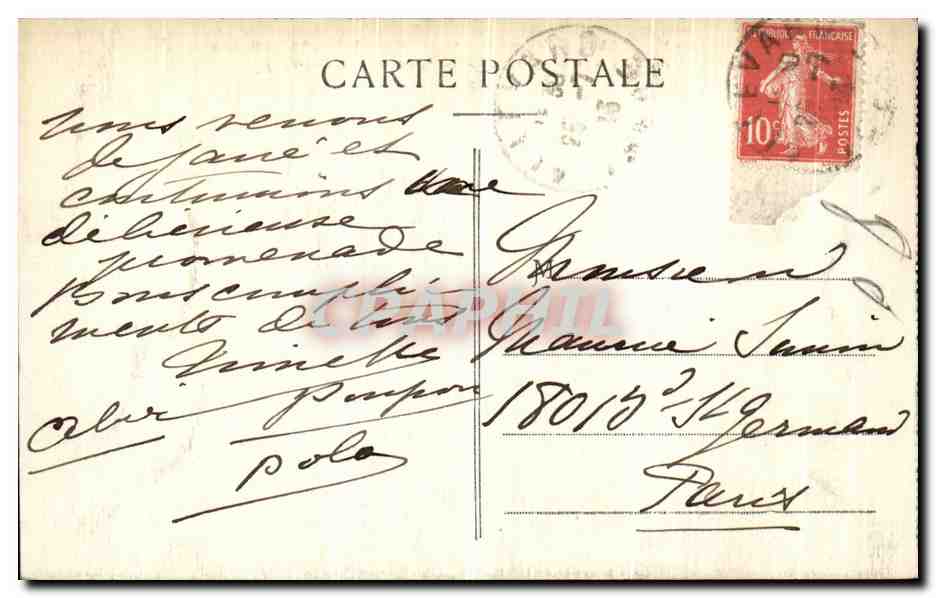 CARTE POSTALE
RÉPUBLIQUE FRANÇAISE
10c
POSTES
nous venons
de et
continuons
délicieuse
promenade
Bons compli
ments de tous
Ninette
Poupon
Pola
Monsieur
Maurice Simon
180 Bd St
Germain
Paris
CPAPHIL